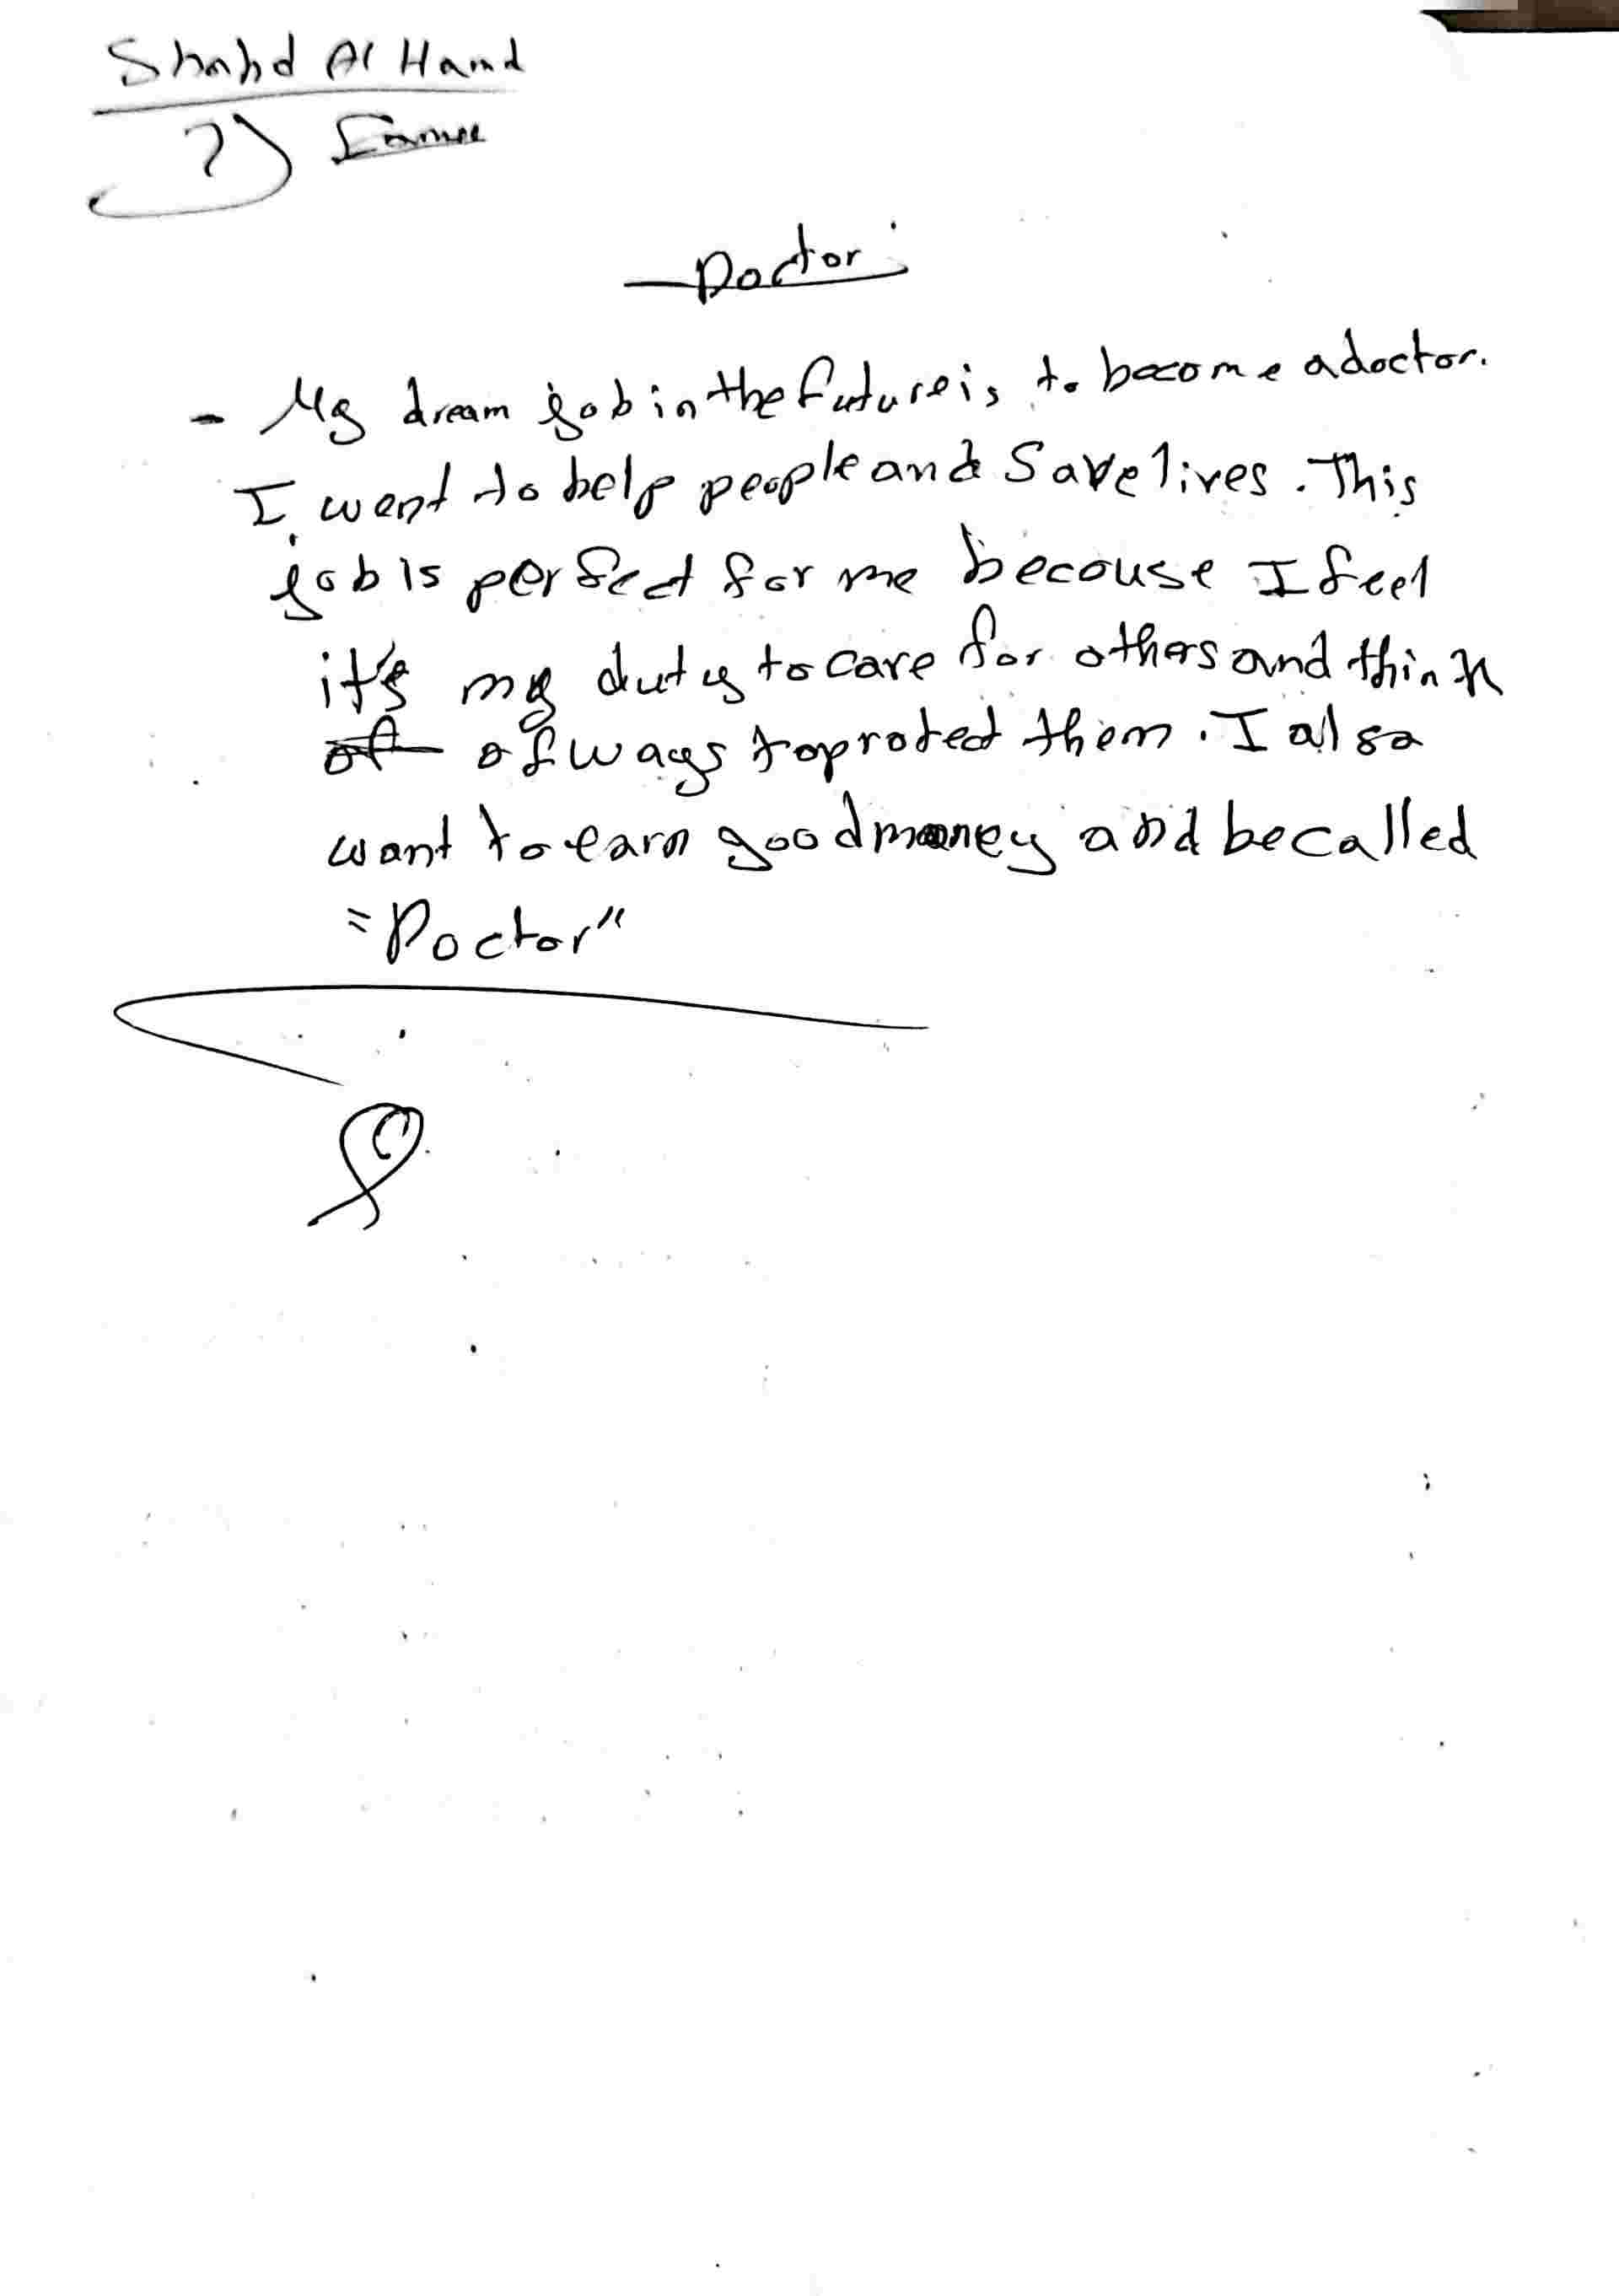 Shahd Al Hamd
Doctor
- My dream job in the future is to become a doctor.
I want to help people and Save lives. This
job is perfect for me becouse I feel
it's my duty to care for others and think
of ways to proted them. I also
want to earn good money and be called
"Doctor"